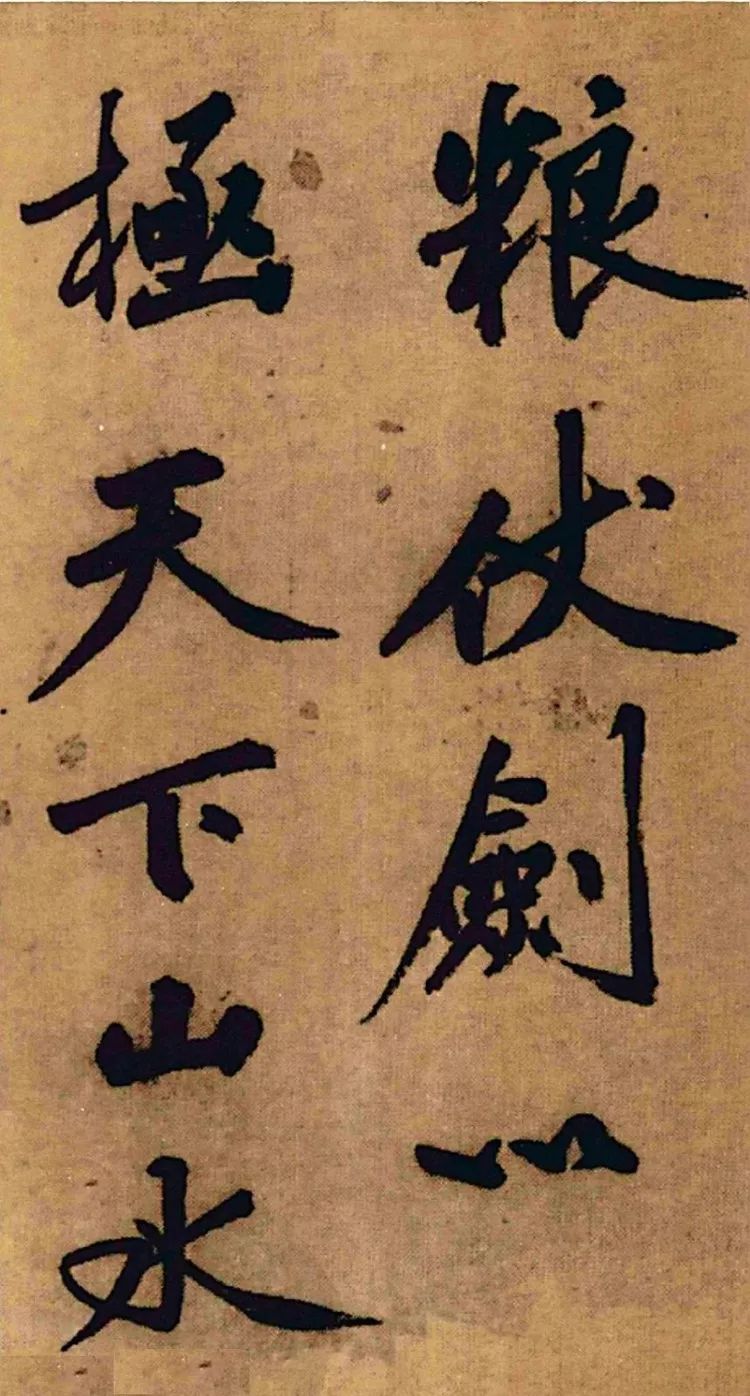 粮伏劍以
極天下山水